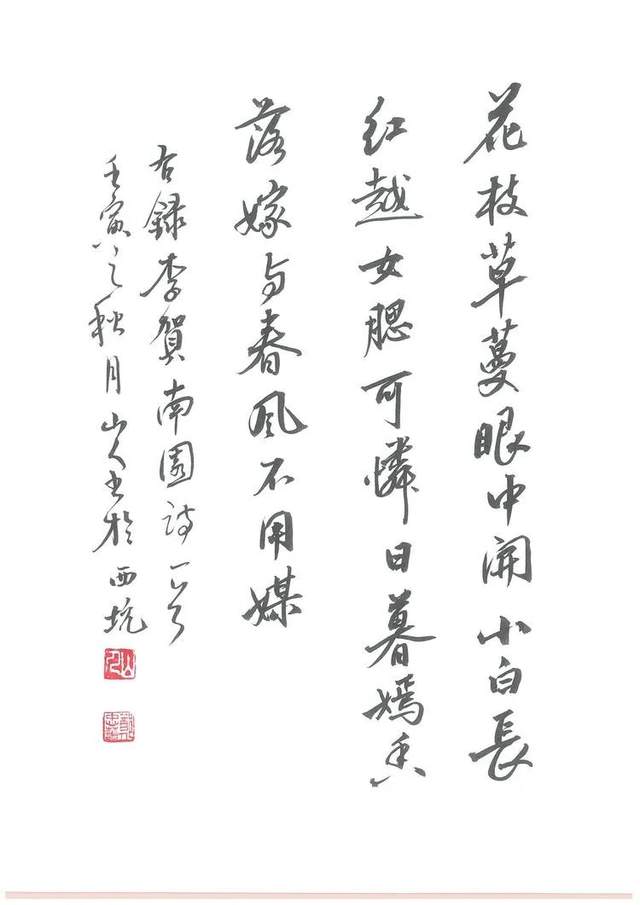 花枝草蔓眼中開小白長
红越女腮可憐日暮嫣香
落嫁与春風不用媒
右録李賀南園詩一首
壬寅之秋月山人書於西坑
山人